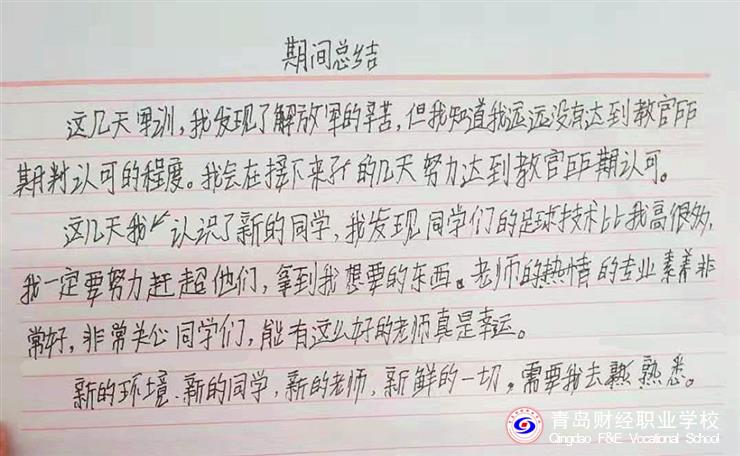 期间总结
这几天军训，我发现了解放军的辛苦，但我知道我还远没有达到教官所
期判认可的程度。我会在接下来的几天努力达到教官所期认可。
这几天我认识了新的同学，我发现同学们的足球技术比我高很多，
我一定要努力赶超他们，拿到我想要的东西。老师的热情的专业素养非
常好，非常关心同学们，能有这么好的老师真是幸运。
新的环境、新的同学，新的老师，新鲜的一切，需要我去熟悉。
青岛财经职业学校
Qingdao F&E Vocational School